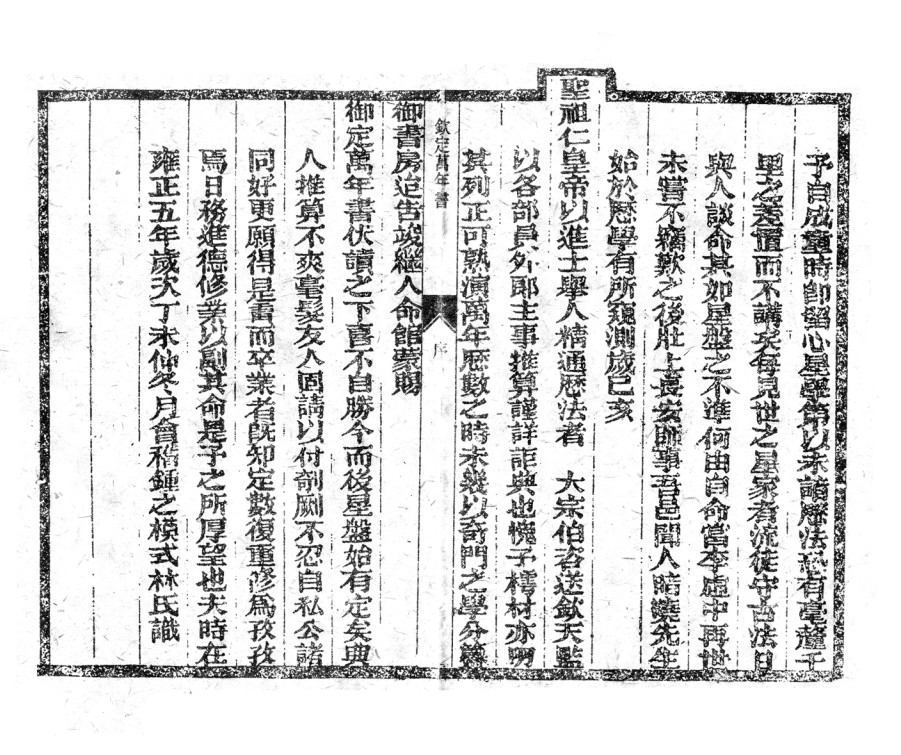 予自成童時即留心星學第以未諳曆法恐有毫釐千
里之差置而不講矣每見世之星家者流徒守古法日
與人談命其如星盤之不準何由自命當李虛中再世
未嘗不竊歎之後肚上袁安師事吾邑聞人暗然先生
始於曆學有所窺測歲己亥
聖祖仁皇帝以進士舉人精通曆法者 大宗伯咨送欽天監
以各部員外郎主事推算謹詳詎典也愧予樗材亦明
其列正可熟演萬年曆數之時未幾以奇門之學分纂
欽定萬年書
序
御書房迨告竣繼入命館蒙賜
御定萬年書伏讀之下喜不自勝今而後星盤始有定矣與
人推算不爽毫髮友人固請以付剞劂不忍自私公諸
同好更願得是書而卒業者既知定數復重修為孜孜
焉日務進德修業以副其命是予之所厚望也夫時在
雍正五年歲次丁未仲冬月會稽鍾之模式林氏識